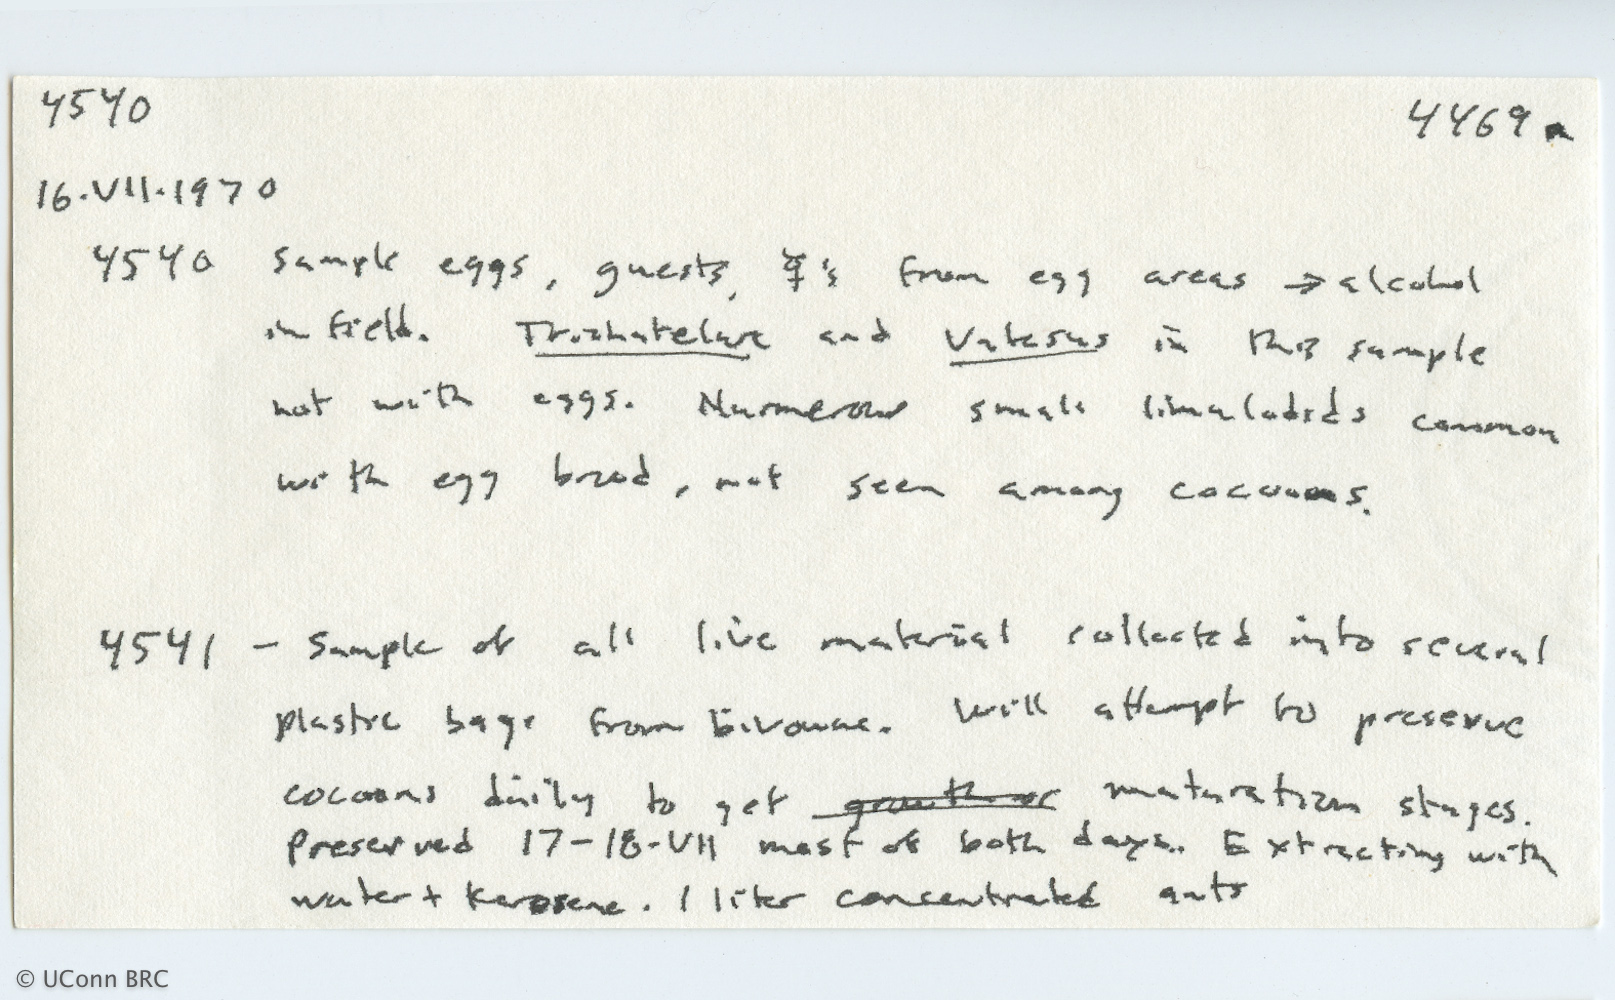 4540 4469a
16.VII.1970
4540 Sample eggs, guests, ☿'s from egg areas → alcohol
in field. Trichatelura and Vatesus in this sample
not with eggs. Numerous small limulodids common
with egg brood, not seen among cocoons.
4541 – Sample of all live material collected into several
plastic bags from bivouac. Will attempt to preserve
cocoons daily to get growth or maturation stages.
Preserved 17-18-VII most of both days. Extracting with
water + Kerosene. 1 liter concentrated ants
© UConn BRC